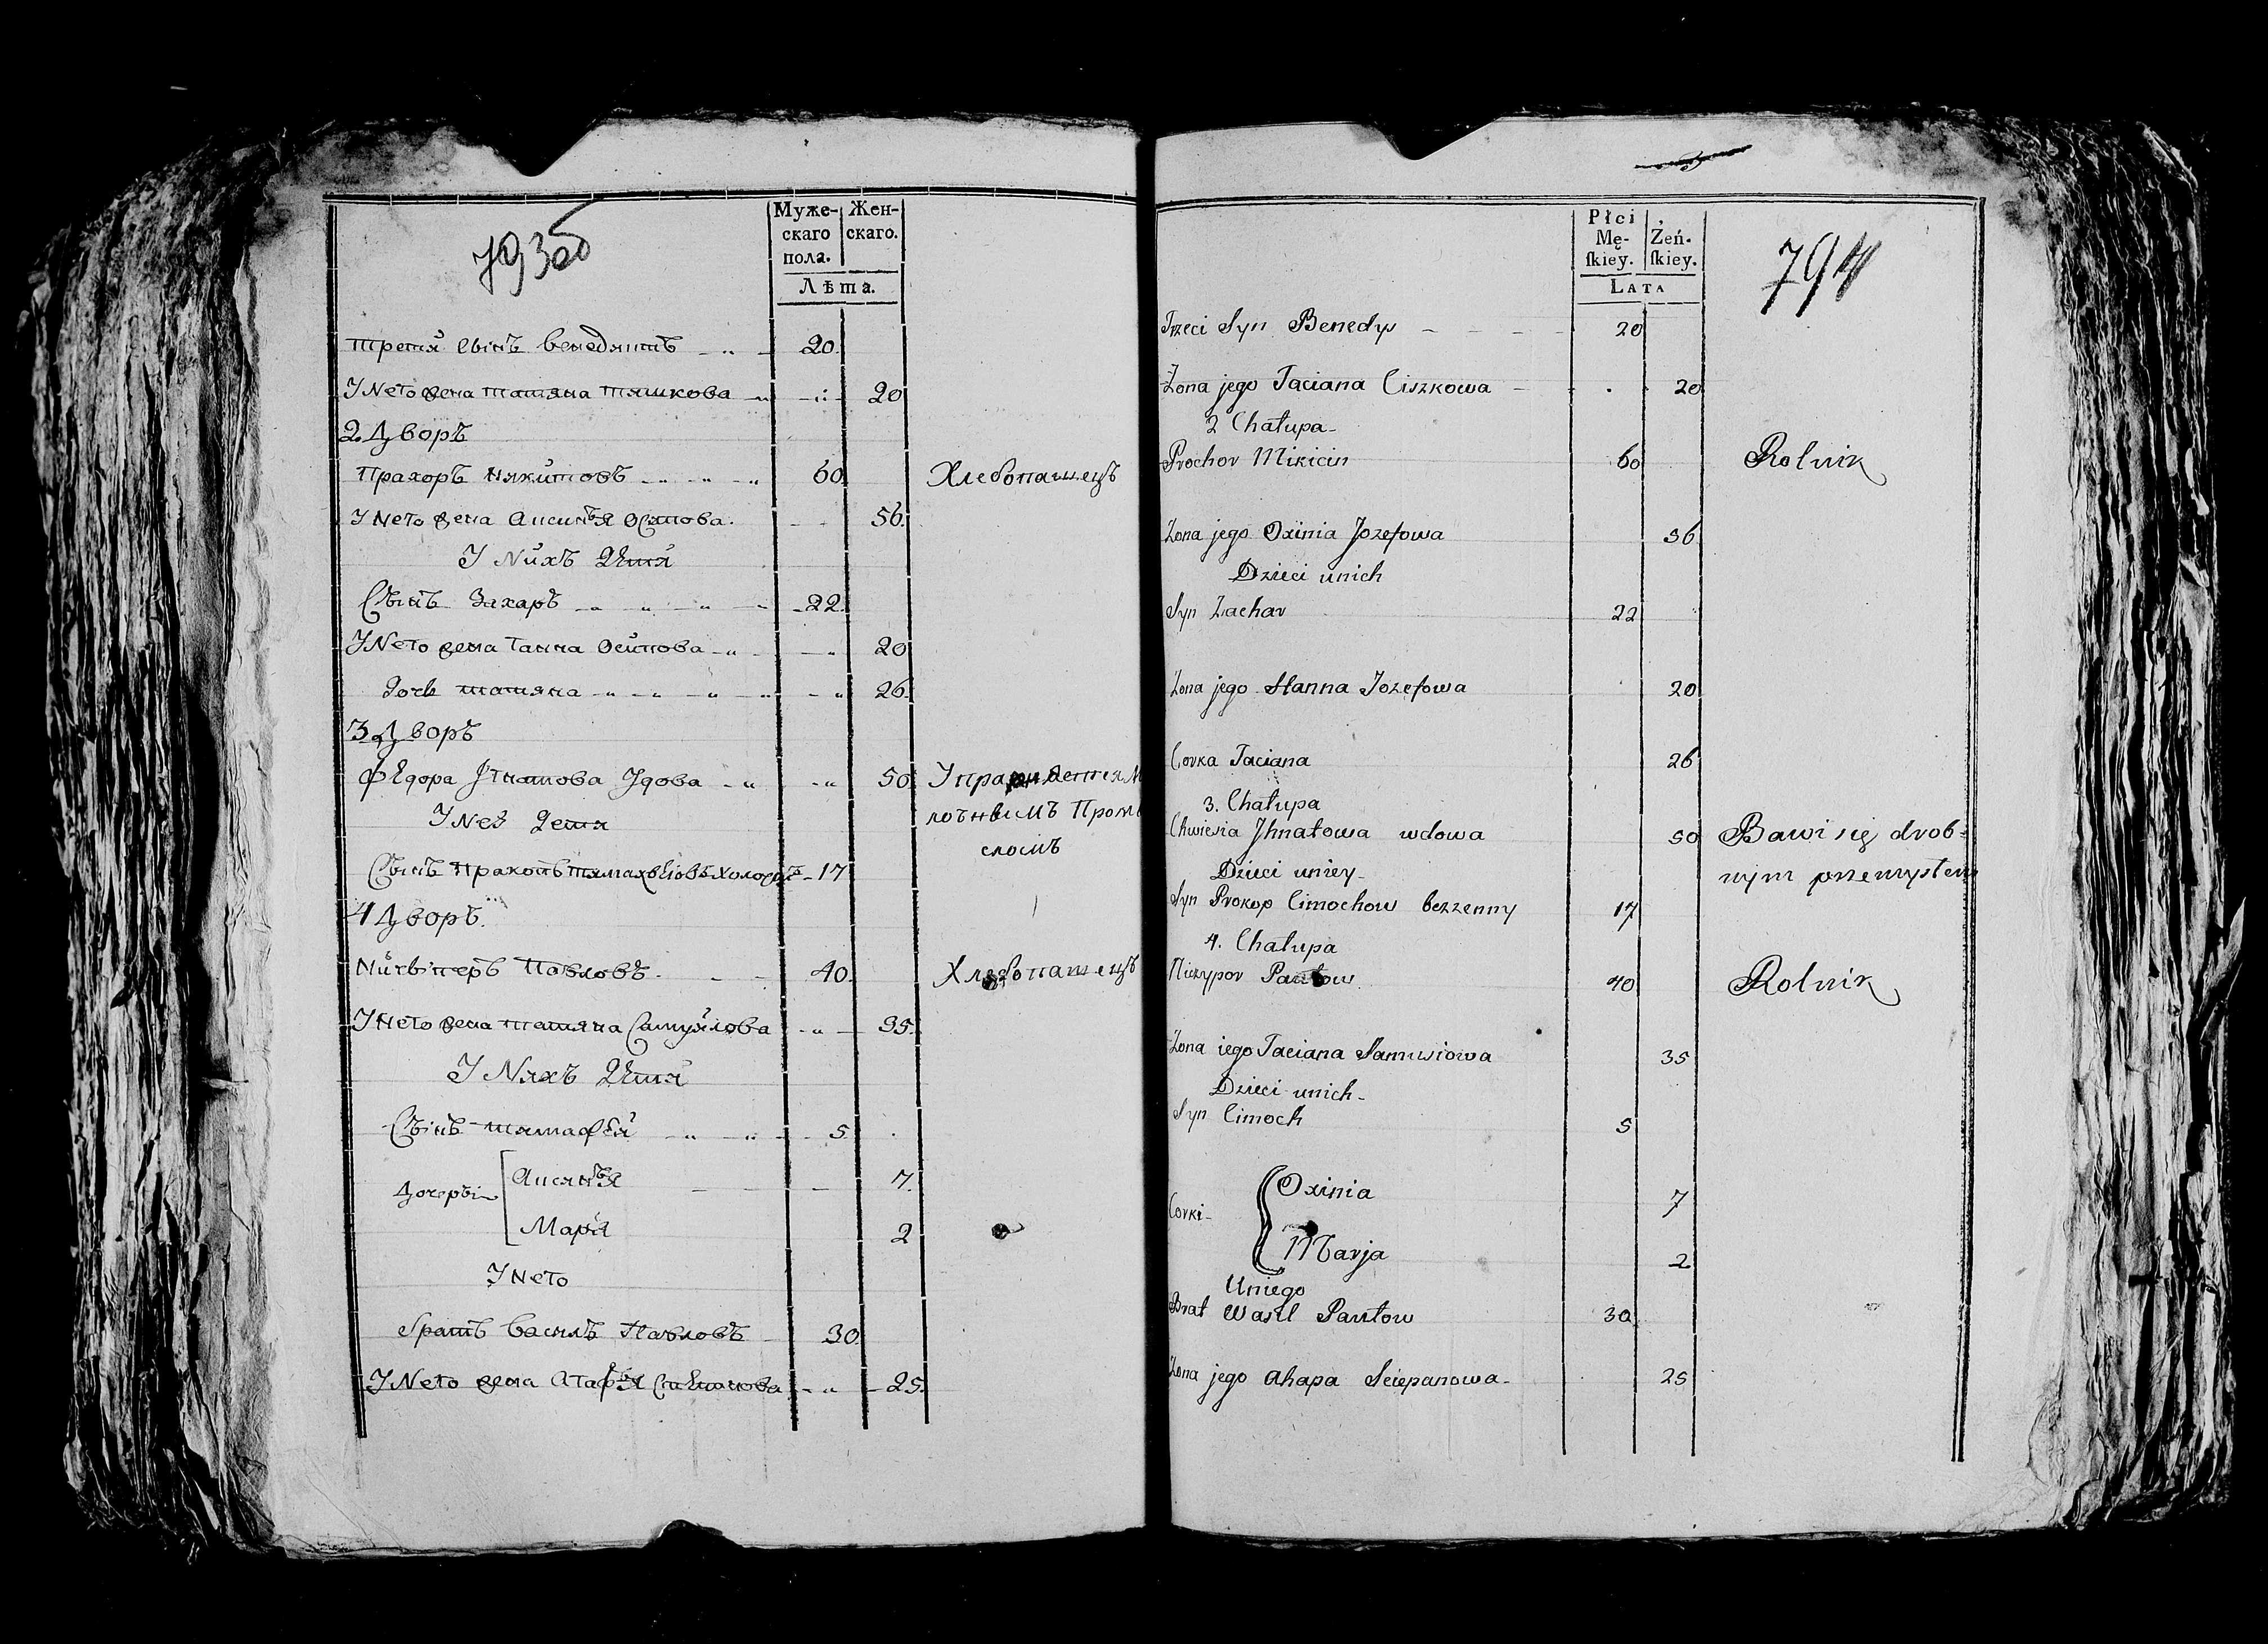 793об
Муже- Жен-
скаго скаго.
пола.
Лѣта.
третя Сынъ Венедиктъ 20
У Него жена татяна тяшкова 20
2. Дворъ
Прахоръ Никитовъ 60 Хлебопашецъ
У Него жена Аксинья Осипова 56
У Нихъ Дети
Сынъ Захаръ 22
У Него жена Ганна Осипова 20
Дочь татяна 26
3 Дворъ
Федора Игнатова Удова 50
У Неё Дети
сломъ
Сынъ Пракопъ 17
4 Дворъ
Ничыперъ Павловъ 40 Хлебопашецъ
У Него жена татяна Самуйлова 35
У Нихъ Дети
Сынъ тимафей 5
Дочеры
Аксинья 7
Марья 2
У Него
братъ Василь Павловъ 30
У Него жена Агафья Степанова 25
794
Płci
Mę- Żeń-
ſkiey. ſkiey.
LATA
Trzeci Syn Benedys 20
Żona jego Taciana Ciszkowa 20
2 Chałupa
Prochor Mikicin 60 Rolnik
Żona jego Oxinia Jozefowa 56
Dzieci unich
Syn Zachar 22
Żona jego Hanna Jozefowa 20
Corka Taciana 26
3. Chałupa
Chwiesia Jhnatowa wdowa 50 Bawi się drob-
Dzieci uniey nym przemysłem
Syn Prokop Cimochow bezzenny 17
4. Chałupa
Niczypor Pawłow 40 Rolnik
Żona iego Taciana Samusiowa 35
Dzieci unich
Syn Cimoch 5
Corki
Oxinia 7
Marja 2
Uniego
Brat Wasil Pawłow 30
Żona jego Ahapa Sciepanowa 25